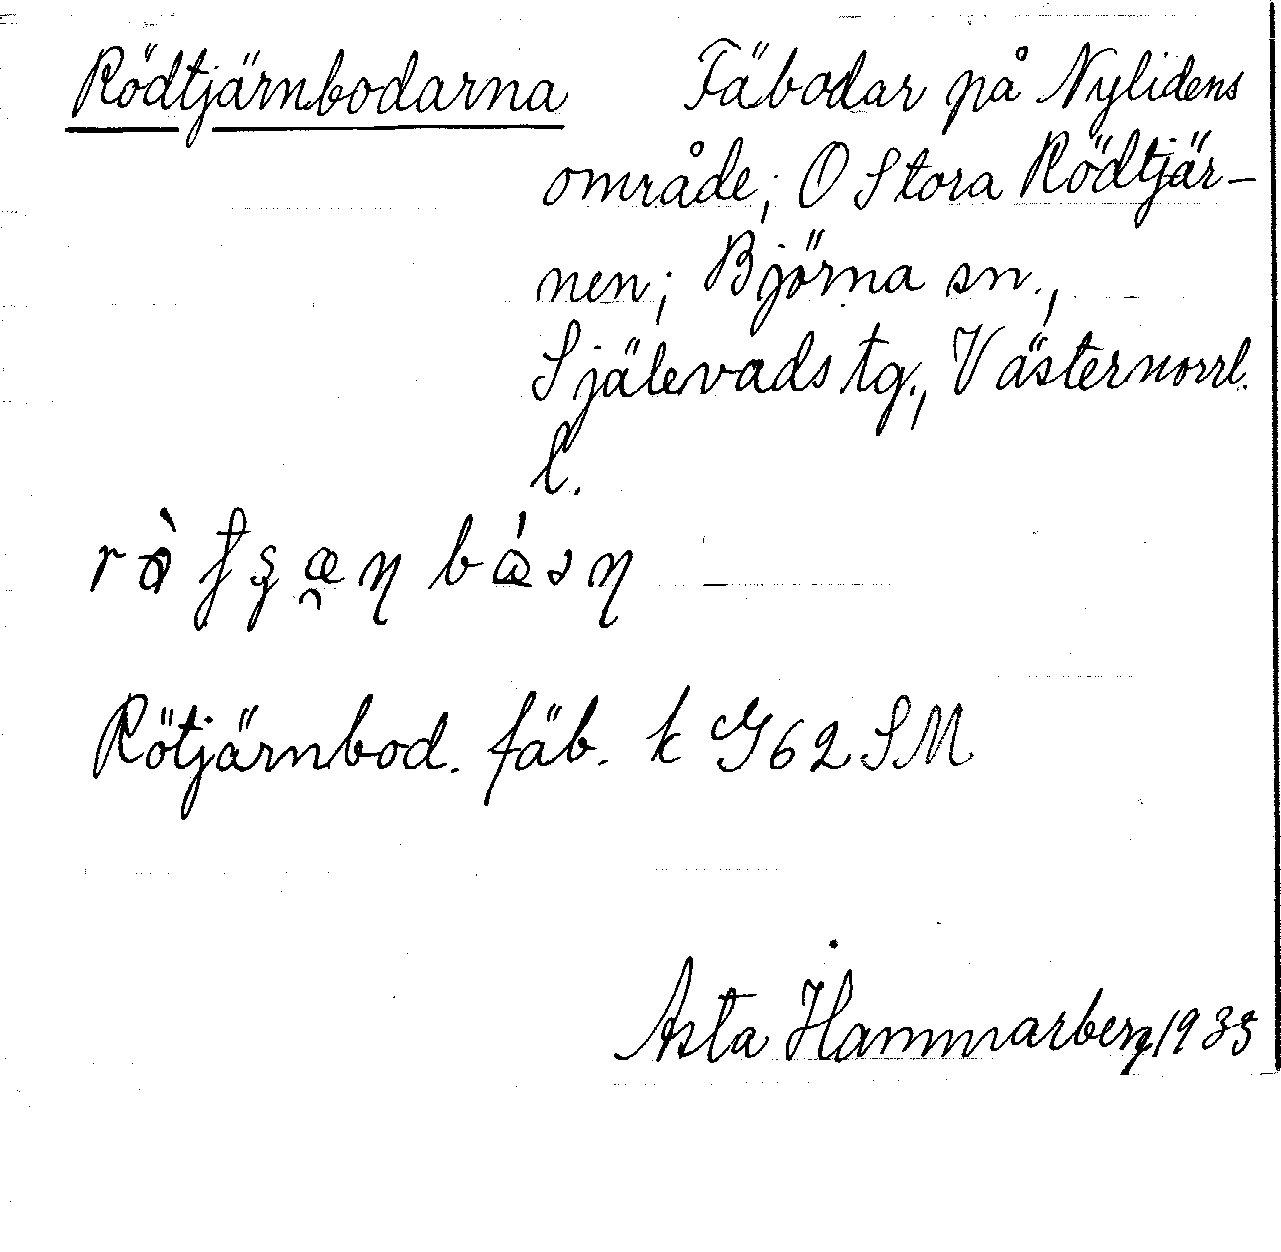 Rödtjärnbodarna Fäbodar på Nylidens
område; O Stora Rödtjär-
nen; Björna sn.,
Själevads tg., Västernorrl.
l.
Rötjärnbod. fäb. k G62SM
Asta Hammarberg 1933